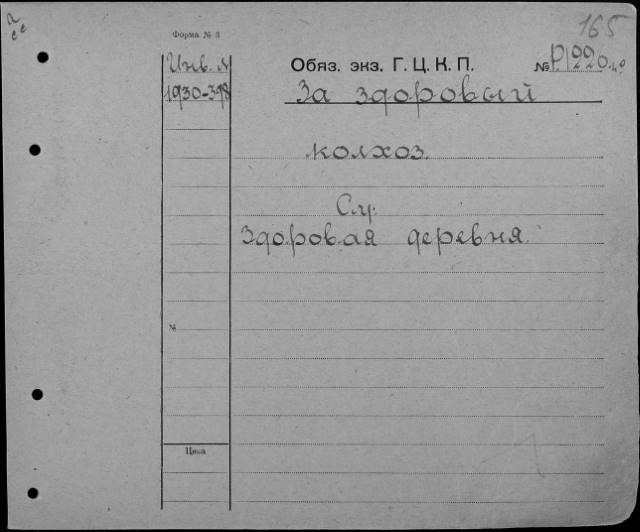 165
Форма № 3
Инв. №
Обяз. экз. Г. Ц. К. П.
№ P/220
1930-398
За здоровый
колхоз.
См.
Здоровая деревня.
№
Цена